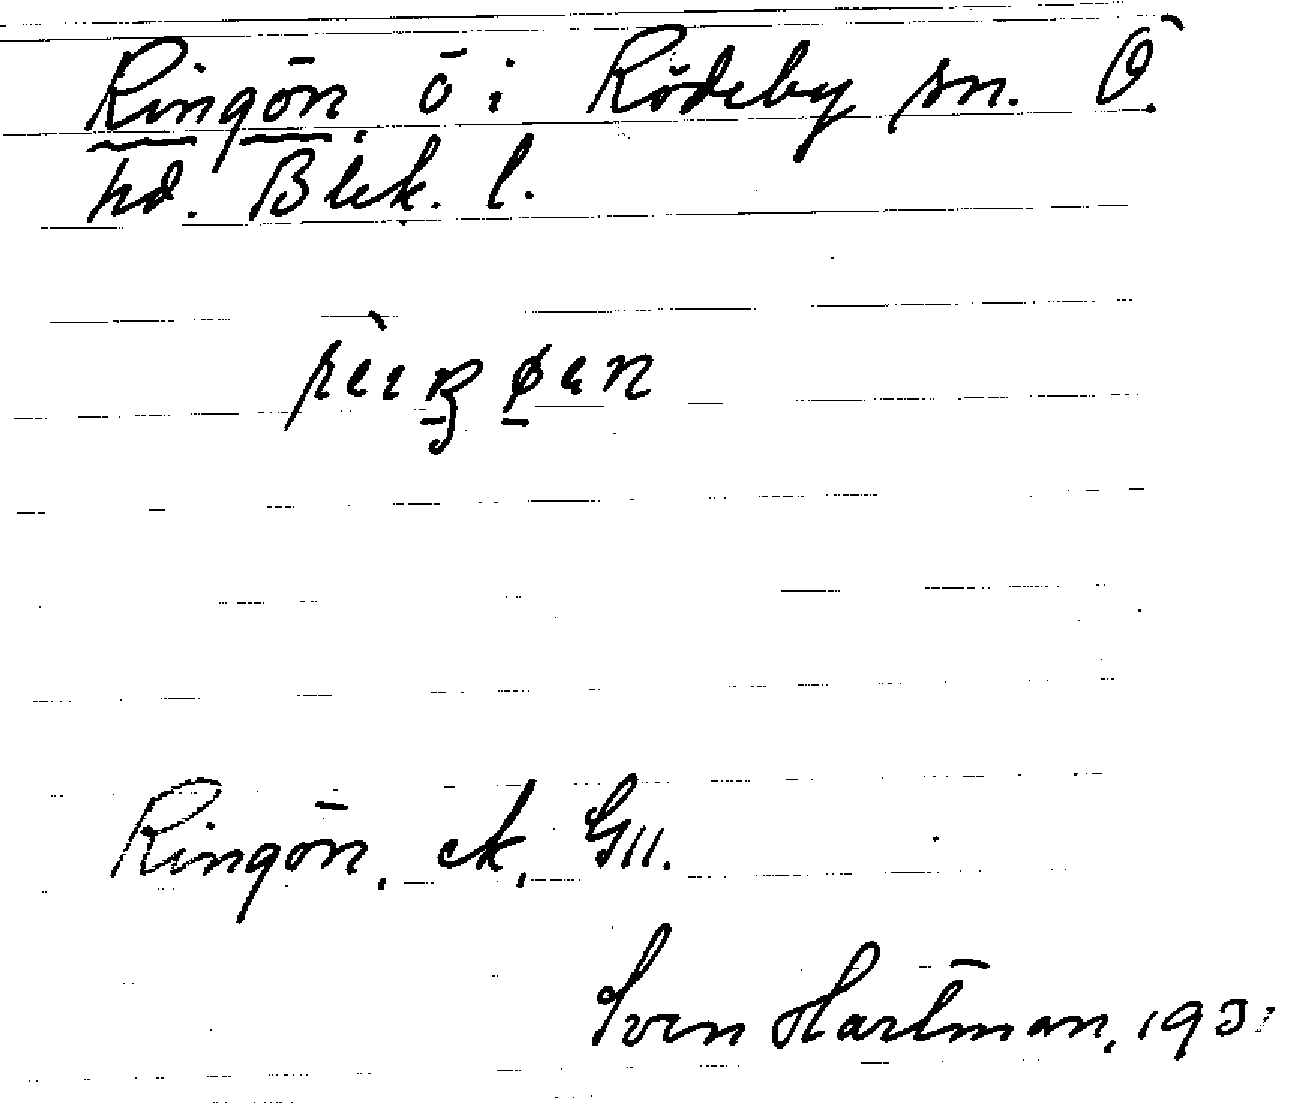 Ringön, ö i Rödeby sn. Ö.
hd. Blek. l.
Ringön, ek, GII.
Sven Hartman, 193